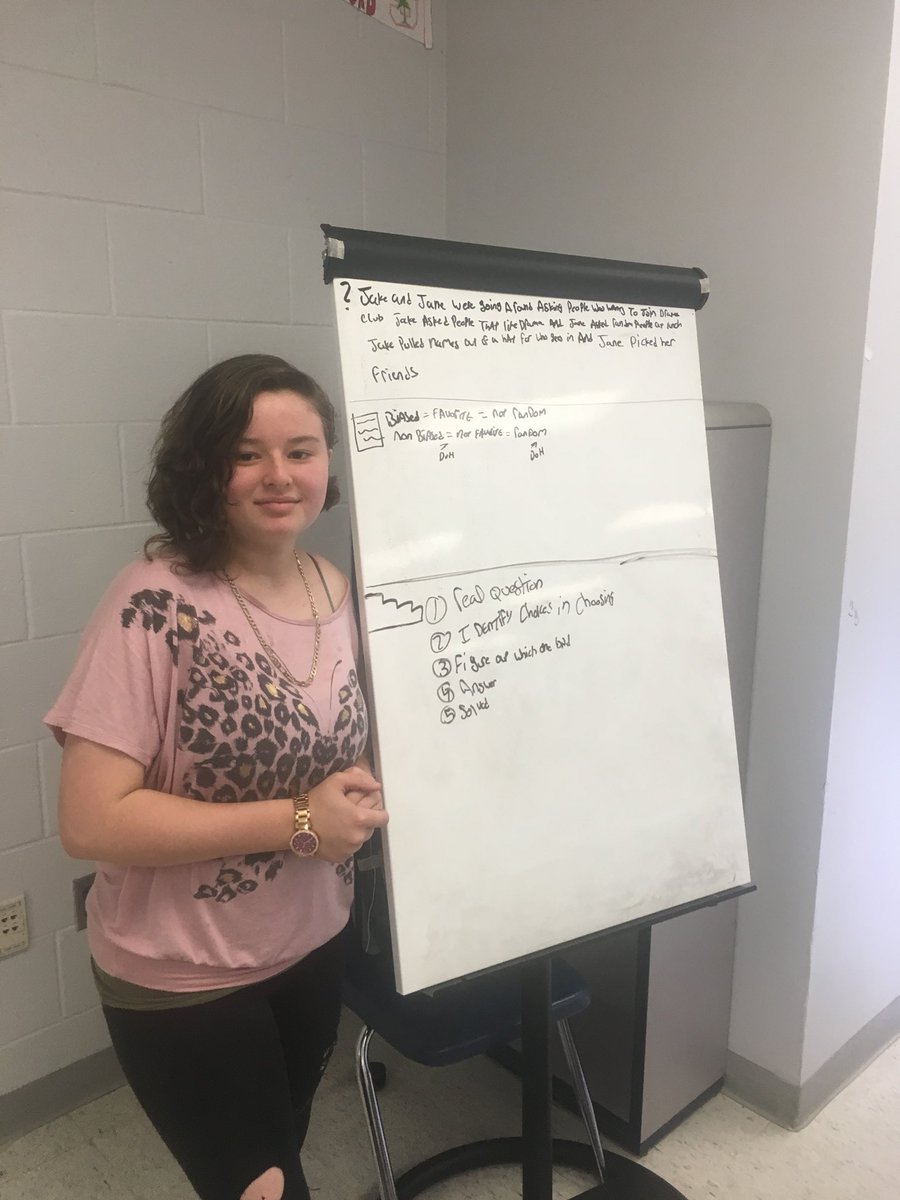 ? Jake and Jane were going around Asking People who wants To Join Drama
club Jake Asked People That like Drama And Jane Asked random People at lunch
Jake Pulled names out of a hat for who goes in And Jane Picked her
friends
Biased = Favorite = not random
non Biased = not Favorite = random
DoH DoH
① read Question
② Identify Choices in Choosing
③ Figure out which one
④ Answer
⑤ Solved